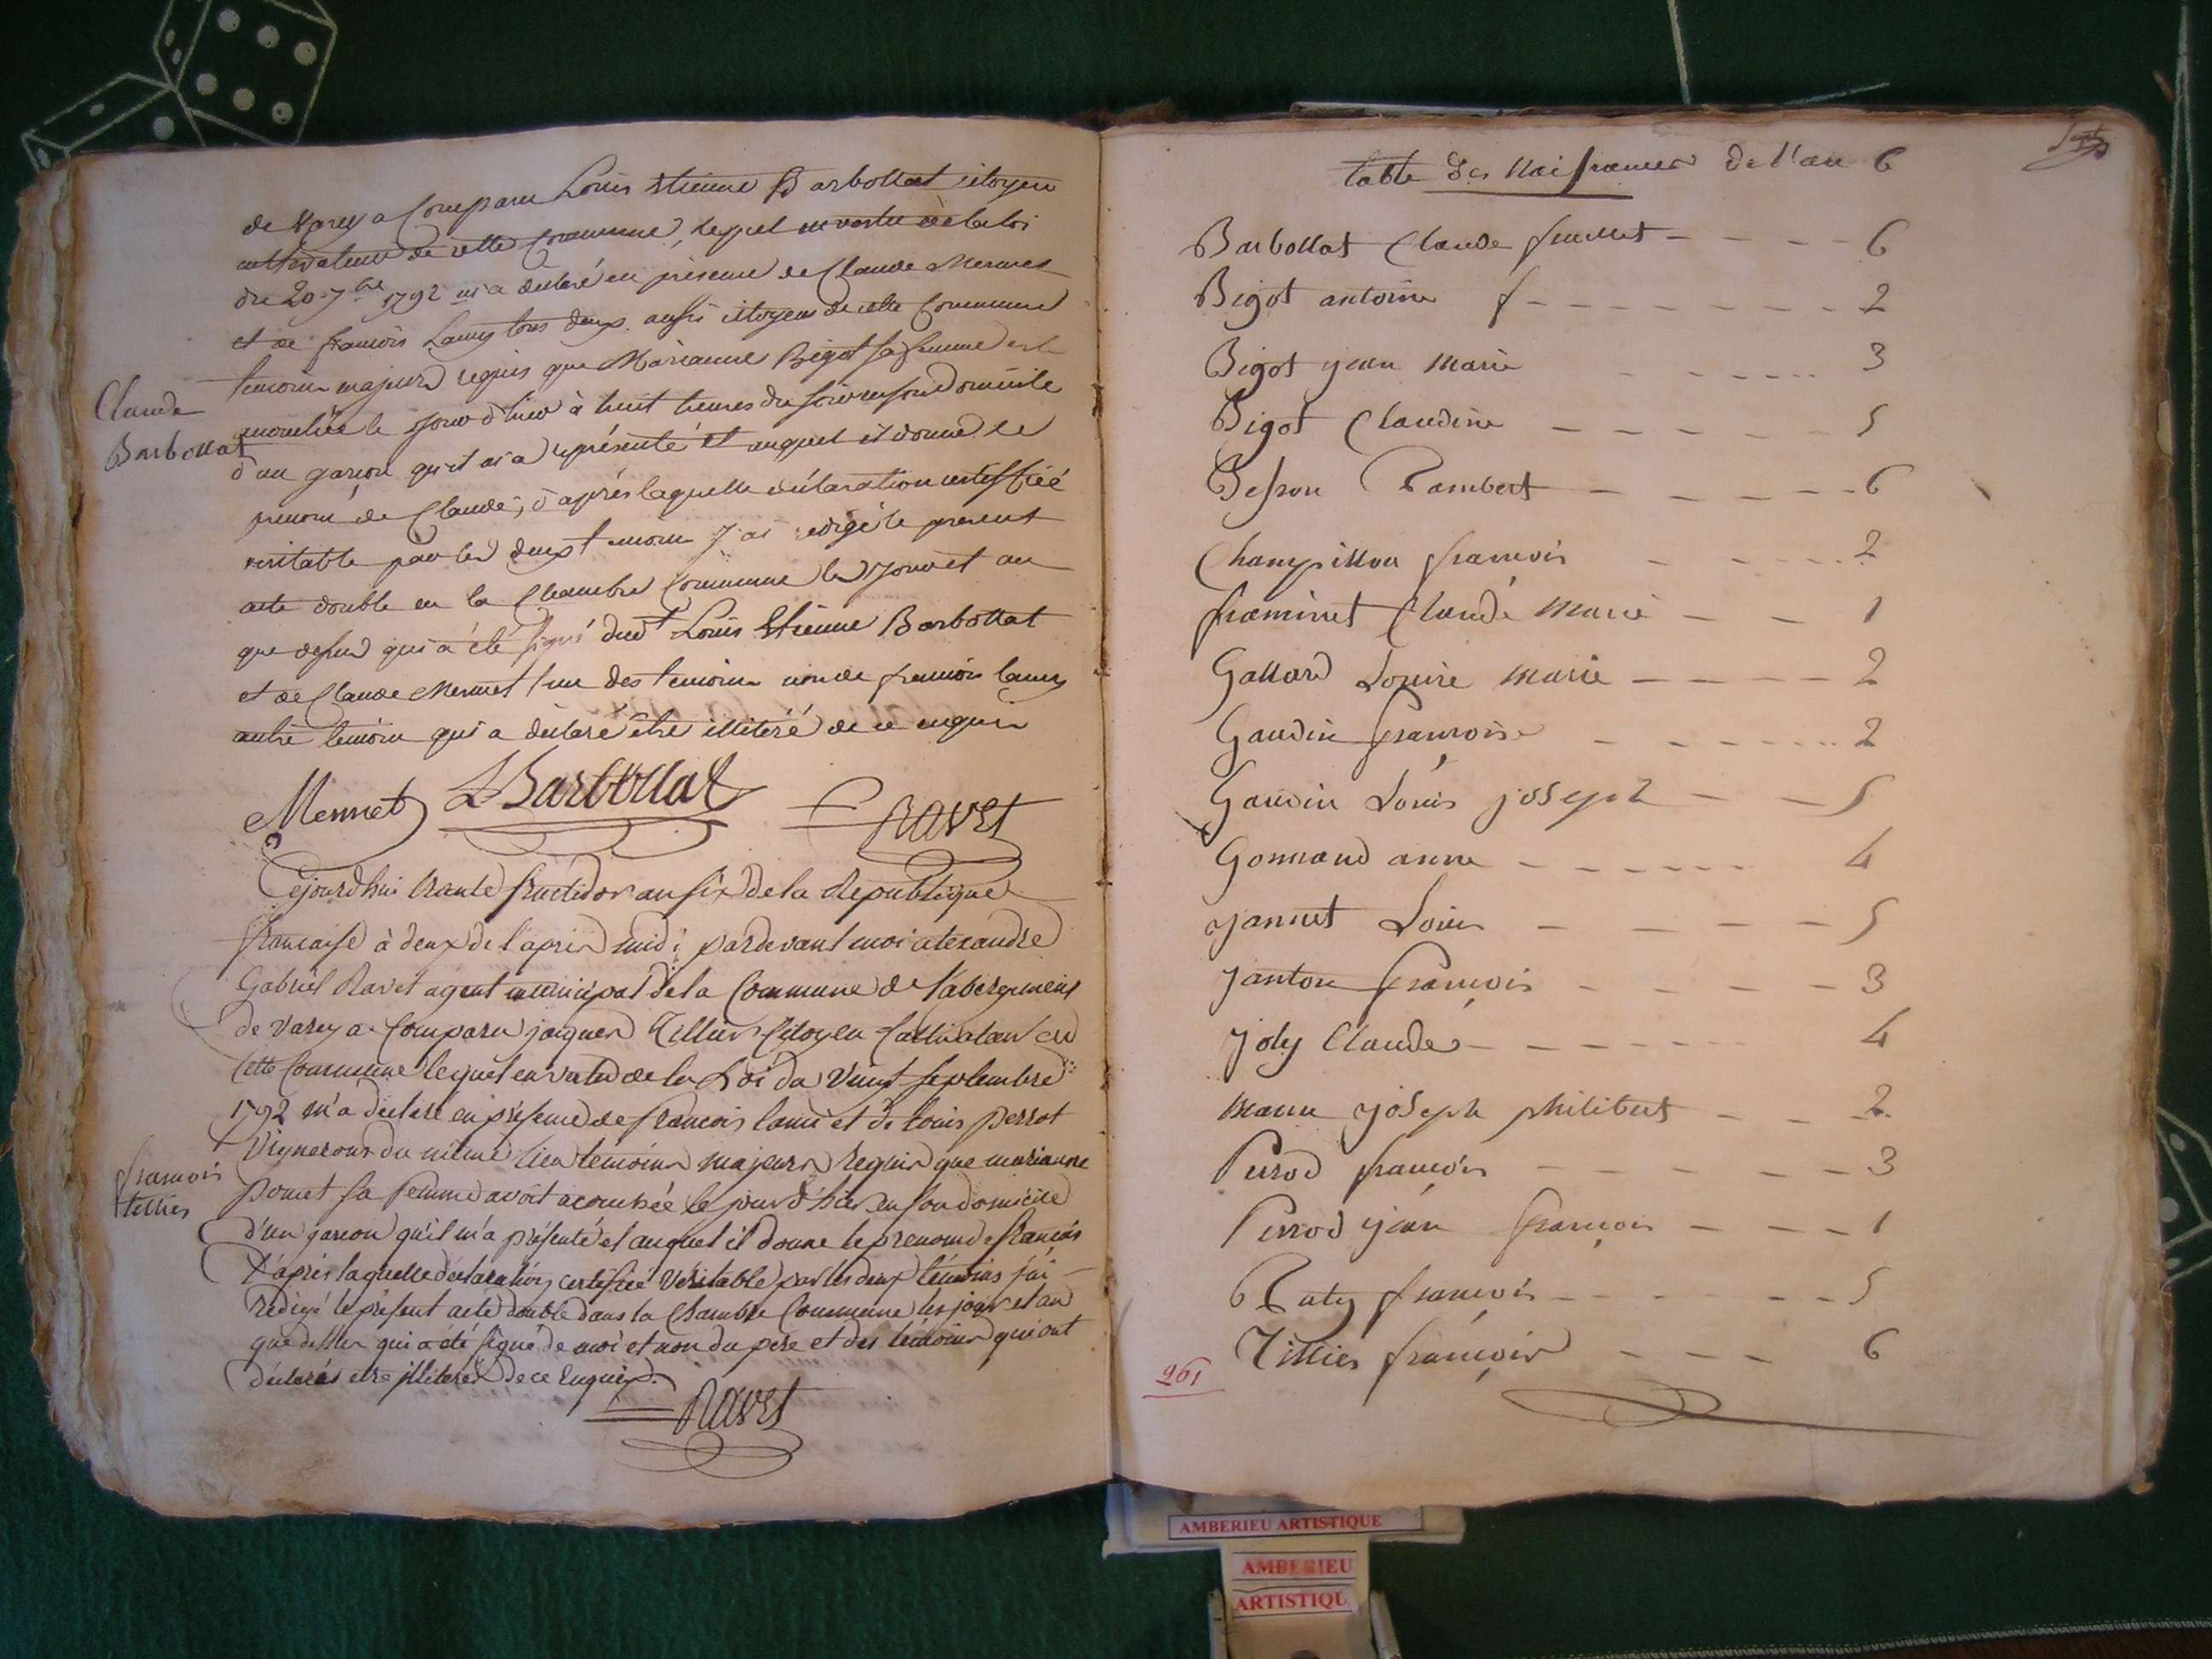 de Varey a Comparu Louis Etienne Barbollat citoyen
cultivateur de cette Commune, lequel en vertu de la loi
du 20 7bre 1792 m'a déclaré en présence de Claude Mermet
et de françois Lamy tous deux aussi citoyens de cette Commune
temoins majeurs requis que Marianne Bigot sa femme est
acouchée le jour d'hier à huit heures du soir en son Domicile
d'un garcon qu'il m'a représenté et auquel il donne le
prenom de Claude, d'après laquelle déclaration certiffiée
véritable par les deux temoins J'ai redigé le present
acte double en la Chambre Commune les jour et an
que dessus qui a été signé dudt Louis Etienne Barbollat
et de Claude Mermet l'un des temoins non de francois lamy
autre temoin qui a déclaré être illitéré de ce enquis
Claude
Barbollat
Mermet LBarbollat Ravet
Cejourdhui trante fructidor an six de la Republique
francaise à deux de l'apres midi pardevant moi alexandre
Gabriel Ravet agent municipal de la Commune de Labergement
de Varey a Comparu jaques Tillier Citoyen Cultivateur en
Cette Commune lequel en vertu de la Loi du Vingt septembre
1792 m'a déclaré en présence de francois lami et de louis perrot
Vignerons du même lieu temoins majeurs requis que marianne
ponet sa femme avoit acouchée le jour d'hier en son domicile
d'un garcon qu'il m'a présenté et auquel il donne le prenom de francois
D'après laquelle déclaration certifiée Véritable par les deux témoins j'ai
redigé le présent acte double dans la Chambre Commune les jour et an
que dessus qui a été signé de moi et non du pere et des témoins qui ont
déclarés etre illiterés de ce Enquis.
francois
tillier
Ravet
table des Naissances de l'an 6
Barbollat Claude feuillet - - - - 6
Bigot antoine f - - - - - - - - 2
Bigot jean Marie - - - - - - 3
Bigot Claudine - - - - - - 5
Besson Rambert - - - - - - 6
Champillon francois - - - - - 2
framinet Claude Marie - - 1
Gallard Louise Marie - - - - 2
Gaudin francoise - - - - - - - 2
Gaudin Louis joseph - - 5
Gonnand anne - - - - - - - 4
jannet Louis - - - - - 5
janton françois - - - - - 3
joly Claude - - - - - - 4
joseph philibert - - 2
Perrod françois - - - - - - 3
Perrod jean françois - - - - 1
Ruty françois - - - - - - 5
Tillier françois - - - 6
261
AMBERIEU ARTISTIQUE
AMBERIEU
ARTISTIQU